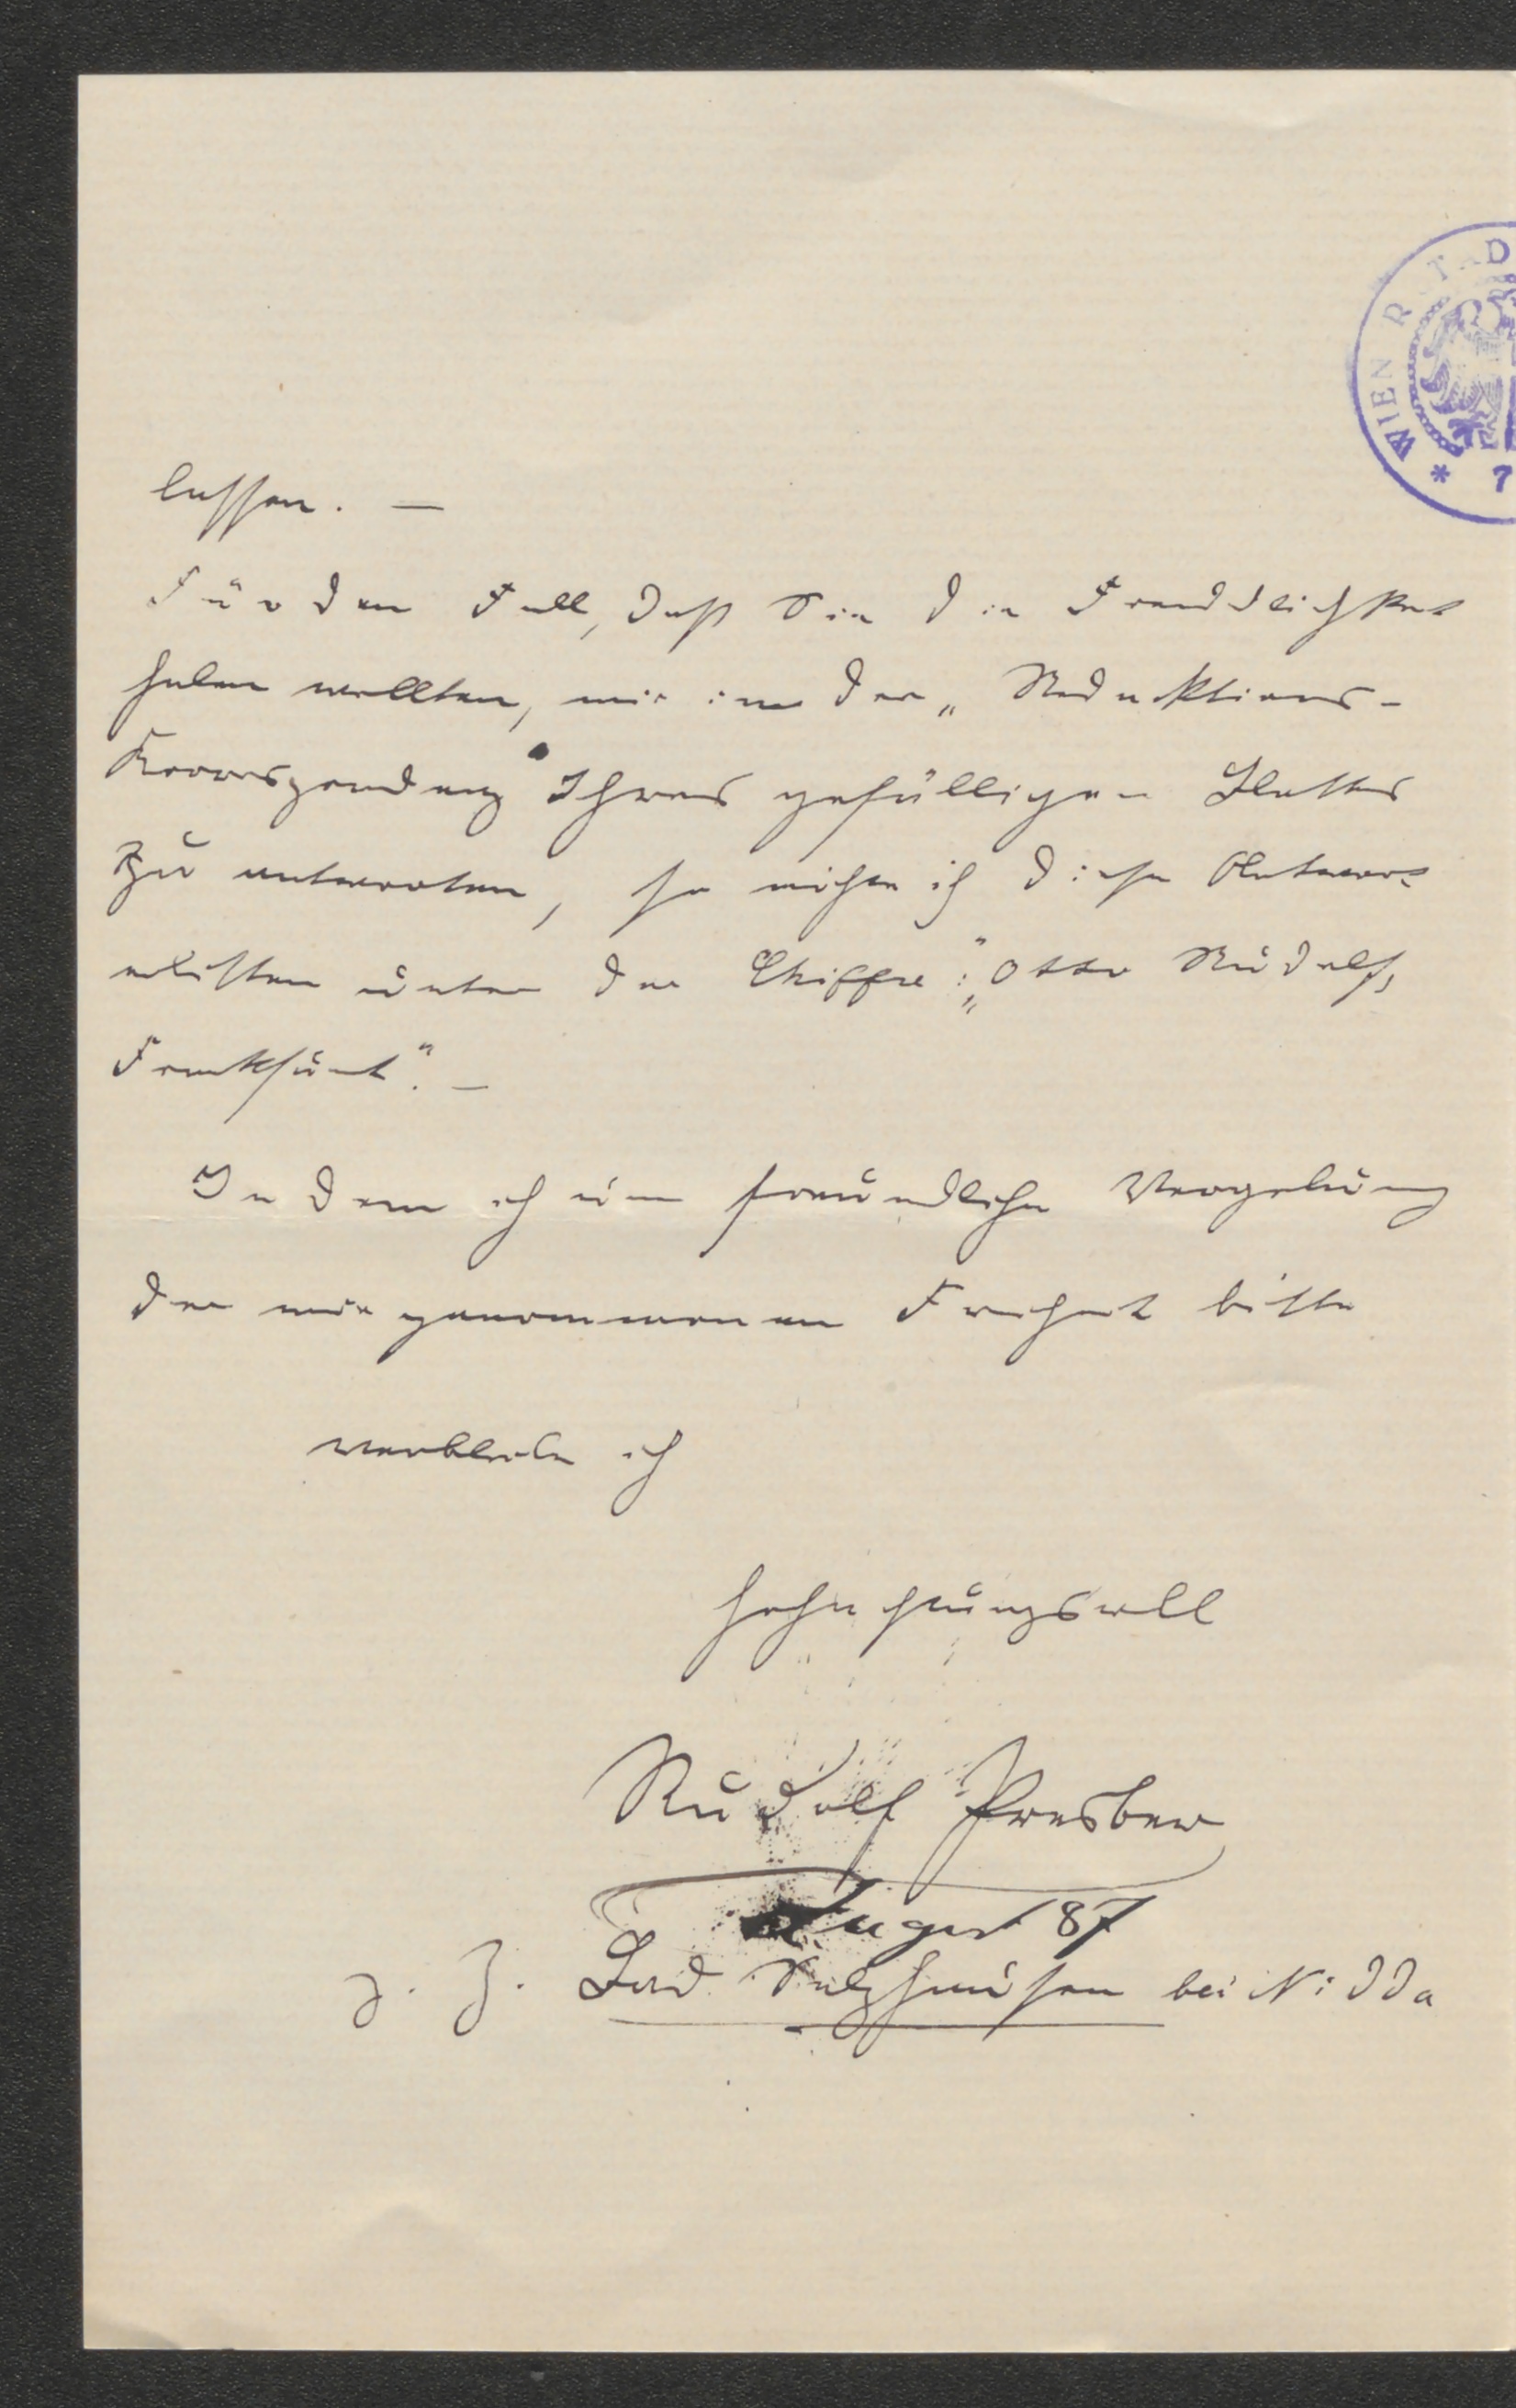 lassen. —
Für den Fall, daß Sie die Freundlichkeit
haben wollten, mir in der „Redaktions-
Korrespondenz" Ihres gefälligen Blattes
zu antworten, so möchte ich diese Antwort
erbitten unter der Chiffre: „Otto Rudolf,
Frankfurt". —
Indem ich um freundliche Vergebung
der mir genommenen Freiheit bitte
verbleibe ich
hochachtungsvoll
Rudolf Presber
August 87
z. Z. Bad Salzhausen bei Nidda
WIENER STAD
* 7